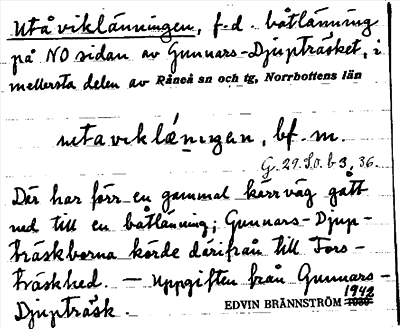 Utåviklänningen, f.d. båtlänning
på NO sidan av Gunnars-Djupträsket, i
mellersta delen av Råneå sn och tg, Norrbottens län
bf. m.
G. 29. S.O. b 3, 36.
Där har förr en gammal kärrväg gått
ned till en båtlänning; Gunnars-Djup-
träskborna körde därifrån till Fors-
träskhed. — Uppgiften från Gunnars-
Djupträsk.
1942
EDVIN BRÄNNSTRÖM